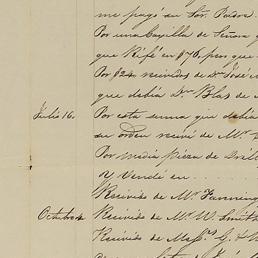 me pagó su Sor. Padre
Por una Caxilla de Señora q
que Rifé en $76, pero que
Por $24 recividos de Dn José
que debia Dn Blas de
Julio 16. Por esta suma que debia
su orden recivi de Mr.
Por media pieza de
Vendé en
Recivido de Mr. Fanning
Octubre Recivido de Mr. W. Smith
Recivido de Messrs G. &